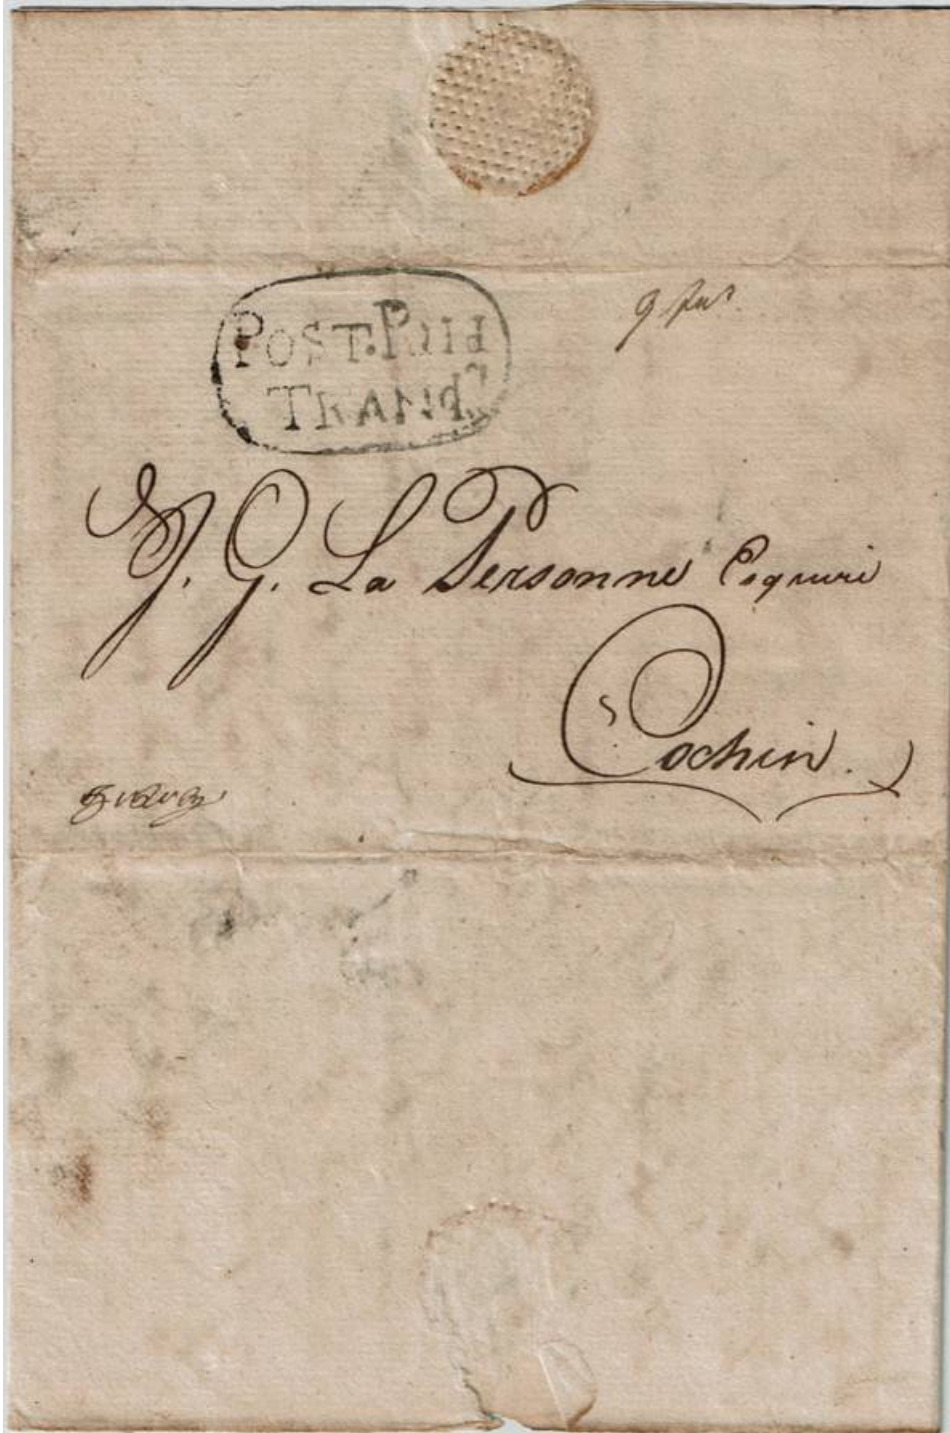 POST. Paid
TRAND
J. G. La Personne Esquire
Cochin